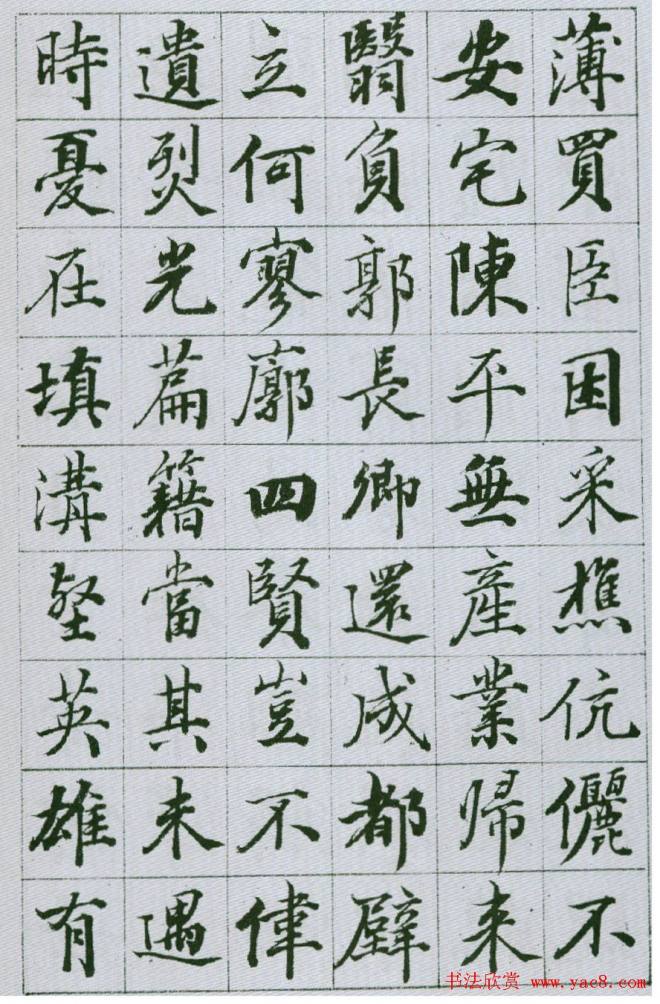 薄買臣困采樵伉儷不
安宅陳平無産業歸来
翳負郭長卿還成都壁
立何寥廓四賢豈不偉
遺烈光篇籍當其未遇
時憂在填溝壑英雄有
书法欣赏 www.yac8.com